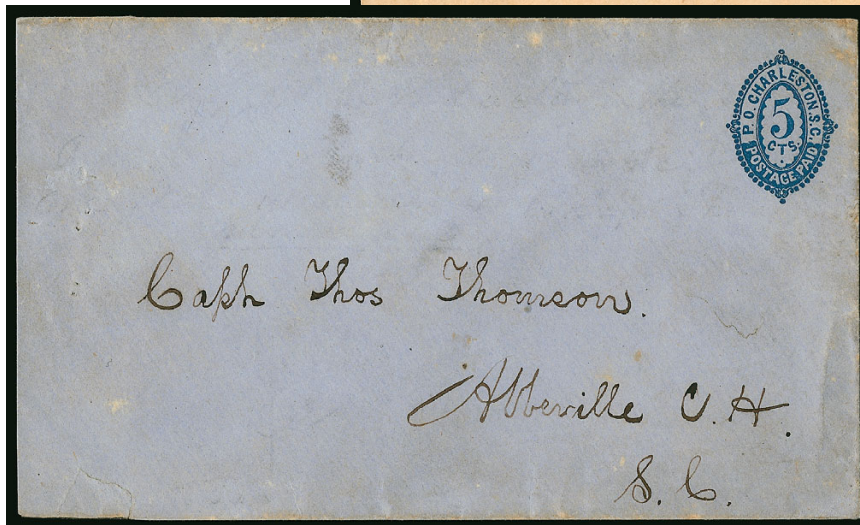 P.O. CHARLESTON. S.C.
5
CTS.
POSTAGE PAID
Capt Thos Thomson.
Abbeville C.H.
S.C.